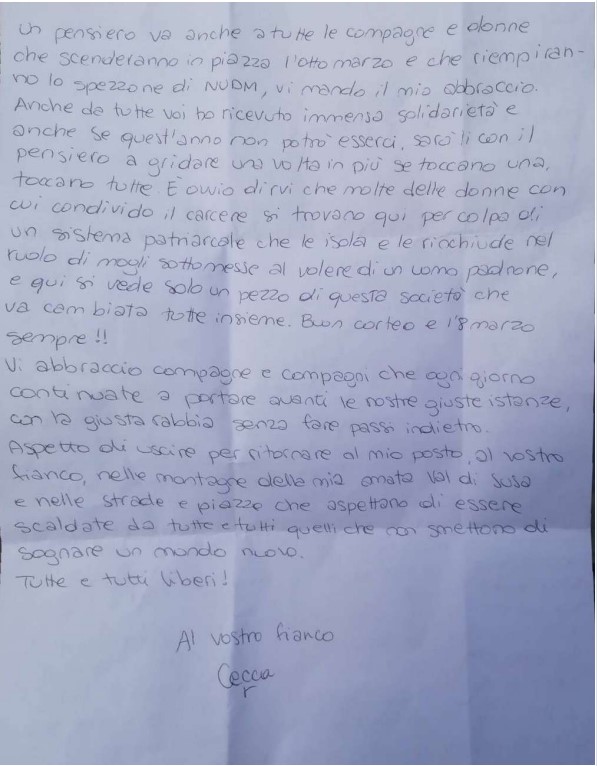 Un pensiero va anche a tutte le compagne e donne
che scenderanno in piazza l'otto marzo e che riempiran-
no lo spezzone di NUDM, vi mando il mio abbraccio.
Anche da tutte voi ho ricevuto immensa solidarietà e
anche se quest'anno non potrò esserci, sarò lì con il
pensiero a gridare una volta in più se toccano una,
toccano tutte. È ovvio dirvi che molte delle donne con
cui condivido il carcere si trovano qui per colpa di
un sistema patriarcale che le isola e le rinchiude nel
ruolo di mogli sottomesse al volere di un uomo padrone,
e qui si vede solo un pezzo di questa società che
va cambiata tutte insieme. Buon corteo e l'8 marzo
sempre!!
Vi abbraccio compagne e compagni che ogni giorno
continuate a portare avanti le nostre giuste istanze,
con la giusta rabbia senza fare passi indietro.
Aspetto di uscire per ritornare al mio posto, al vostro
fianco, nelle montagne della mia amata Val di Susa
e nelle strade e piazze che aspettano di essere
scaldate da tutte e tutti quelli che non smettono di
sognare un mondo nuovo.
Tutte e tutti liberi!
Al vostro fianco
Cecca